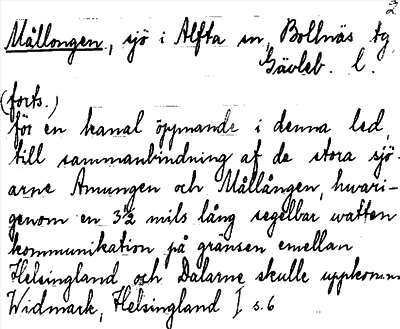 3/2
Mållongen, sjö i Alfta sn, Bollnäs tg,
Gävleb. l.
(forts.)
för en kanal öppnande i denna led,
till sammanbindning af de stora sjö-
arne Amungen och Mållången, hvari-
genom en 3½ mils lång segelbar watten
kommunikation på gränsen emellan
Helsingland och Dalarne skulle uppkomm
Widmark, Helsingland I s.6